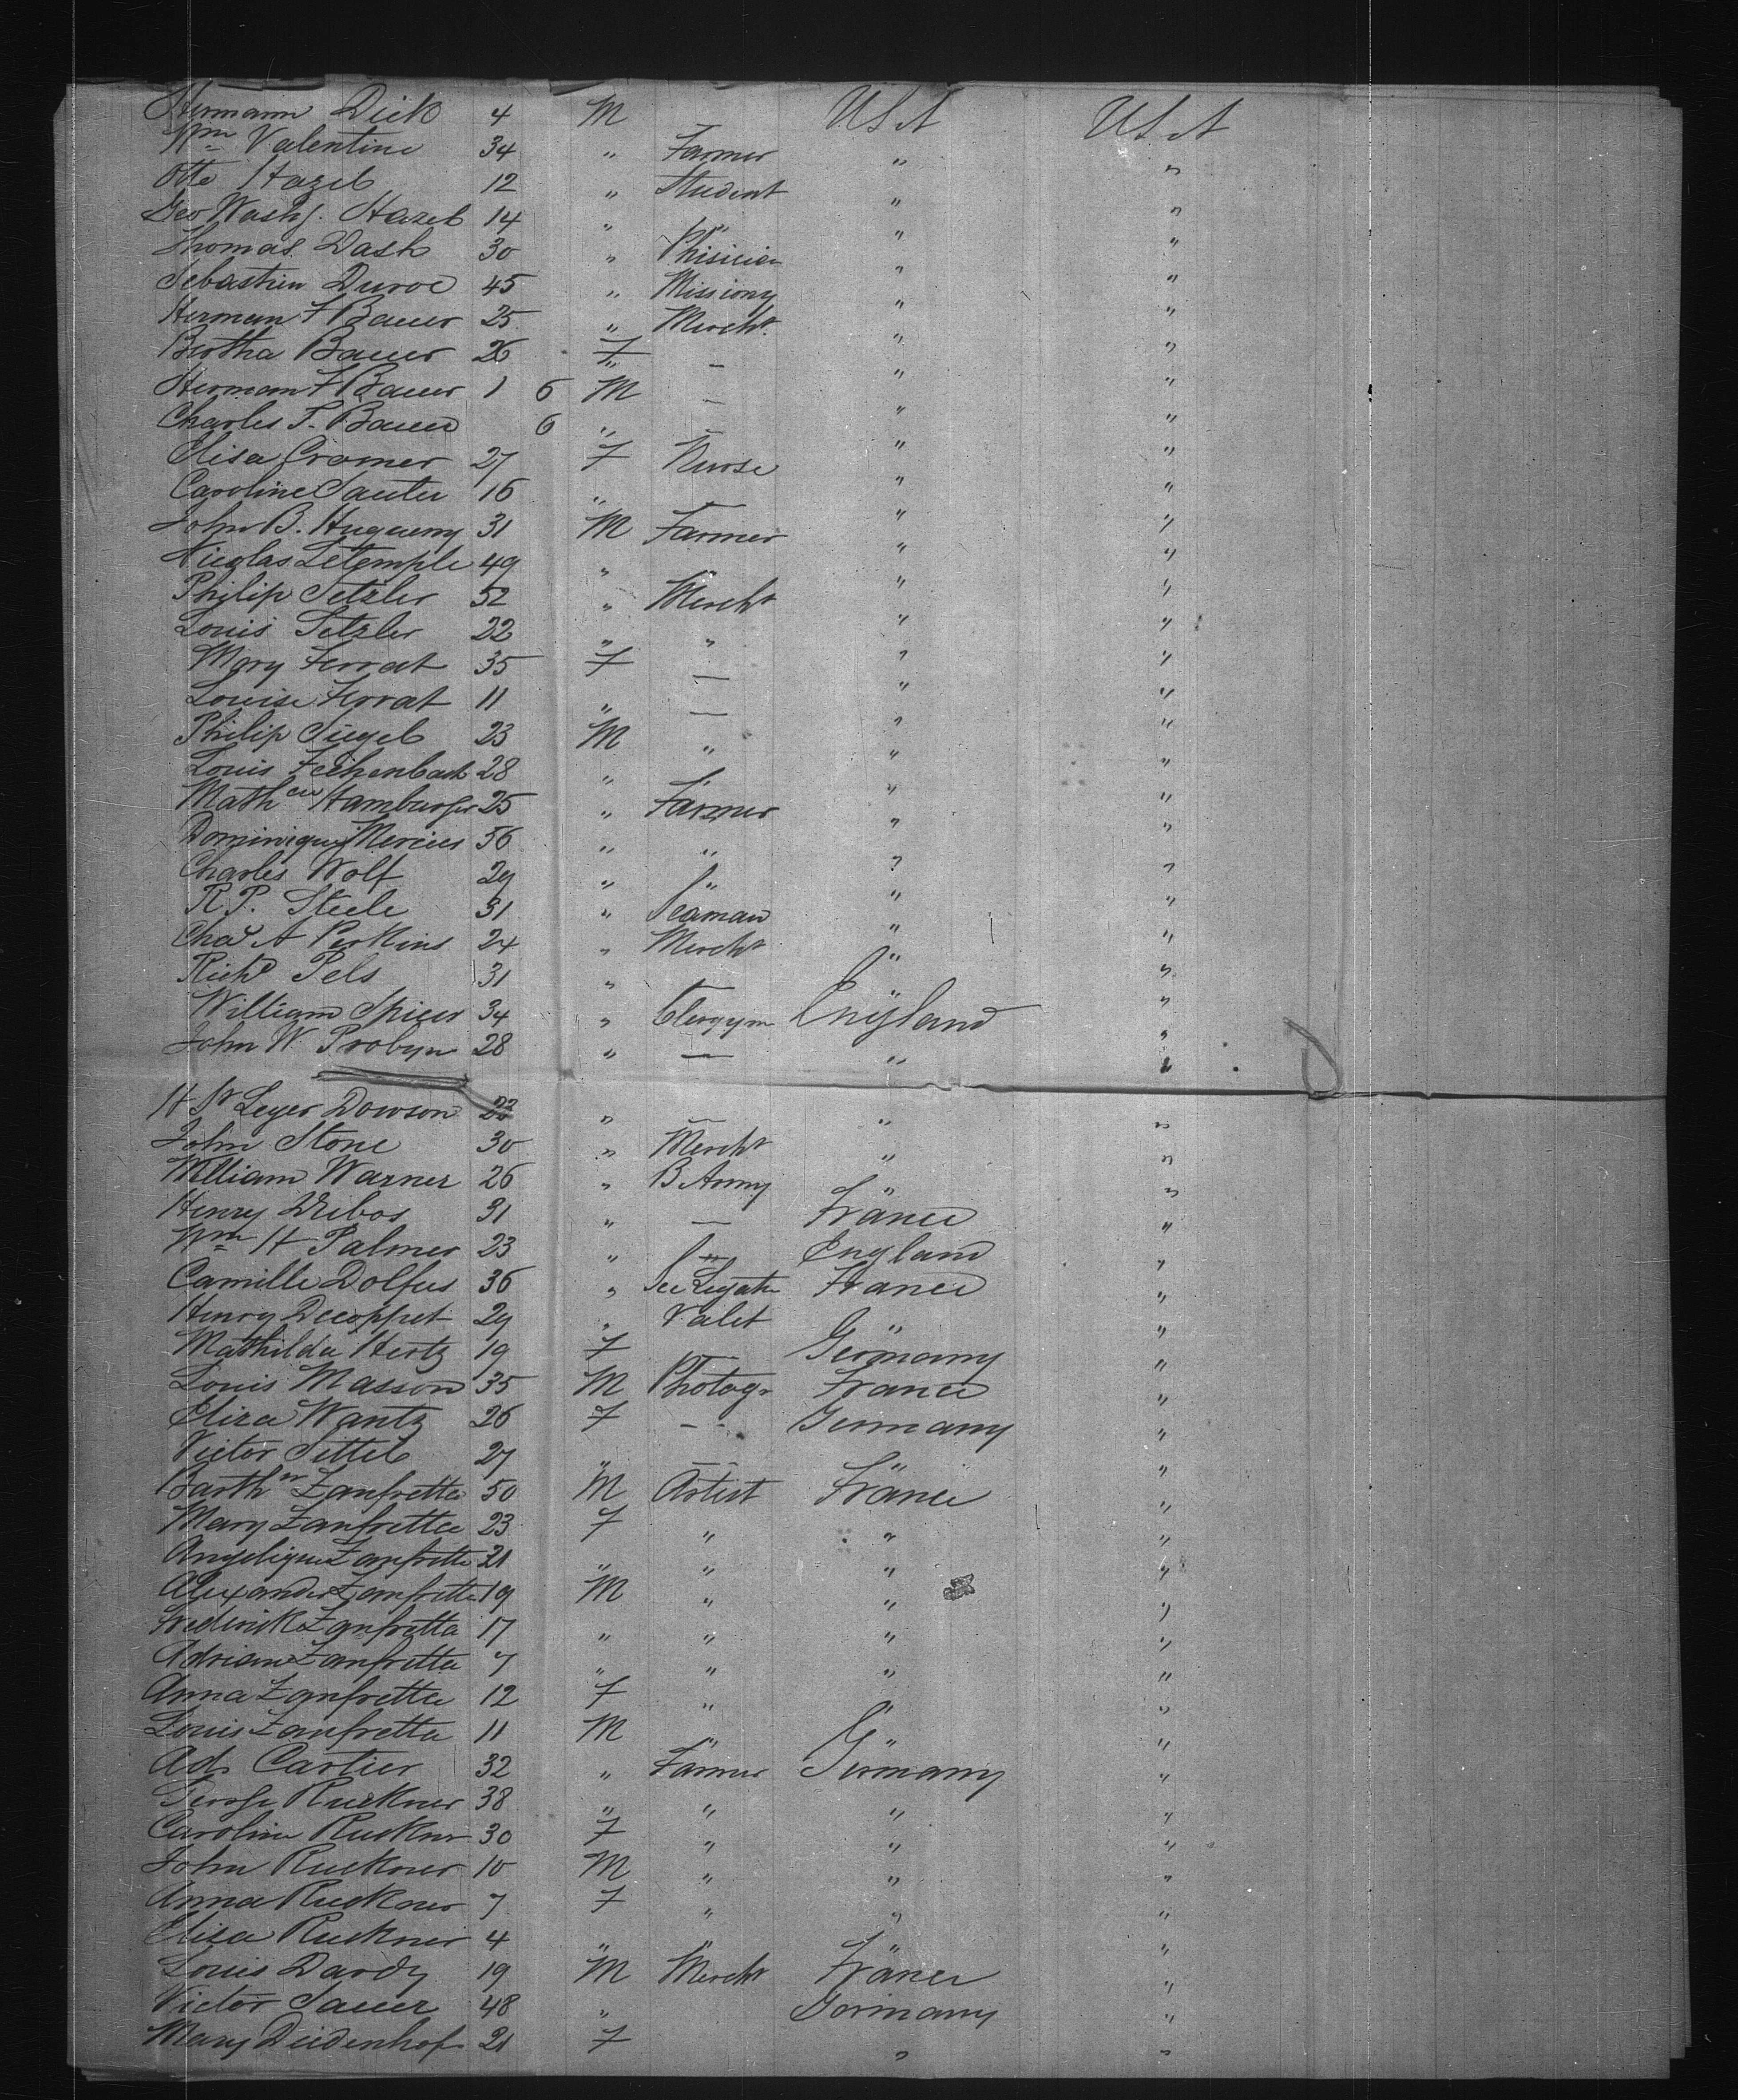 Hermann Dick 4 M — USA USA
Wm Valentine 34 " Farmer " "
Otto Hazel 12 " Student " "
Geo Washg. Hazel 14 " " " "
Thomas Dash 30 " Phisician " "
Sebastien Duroc 45 " Missiony " "
Herman F Bauer 25 " Mercht " "
Bertha Bauer 26 F — " "
Herman F Bauer 1 6 M — " "
Charles T. Bauer 6 " — " "
Elisa Cramer 27 F Nurse " "
Caroline Sauter 16 " — " "
John B. Huguemy 31 M Farmer " "
Nicolas Letemple 49 " " " "
Philip Setzler 52 " Mercht " "
Louis Setzler 22 " " " "
Mary Ferrat 35 F — " "
Louise Ferrat 11 " — " "
Philip Siegel 23 M " " "
Louis Feihenbach 28 " " " "
Mathieu Hamburger 25 " Farmer " "
Dominique Mercier 56 " " " "
Charles Wolf 29 " " " "
R P. Steele 31 " Seaman " "
Chas A Perkins 24 " Mercht " "
Richd Pels 31 " " " "
William Spicer 34 " Clergym England "
John W Probyn 28 " — " "
H St Leger Dowson 23 " — " "
John Stone 30 " Mercht " "
William Warner 26 " B Army " "
Henry Dribos 31 " — France "
Wm H Palmer 23 " — England "
Camille Dolfus 36 " Sec Legatn France "
Henry Decoppet 29 " Valet " "
Mathilda Hertz 19 F — Germany "
Louis Masson 35 M Photogr France "
Eliza Wantz 26 F — Germany "
Victor Sittel 27 " — " "
Barthw Zanfretta 50 M Artist France "
Mary Zanfretta 23 F " " "
Angelique Zanfretta 21 " " " "
Alexander Zanfretta 19 M " " "
Frederick Zanfretta 17 " " " "
Adrian Zanfretta 7 " " " "
Anna Zanfretta 12 F " " "
Louis Zanfretta 11 M " " "
Ad. Cartier 32 " Farmer Germany "
George Ruckner 38 " " " "
Caroline Ruckner 30 F " " "
John Ruckner 10 M " " "
Anna Ruckner 7 F " " "
Elisa Ruckner 4 " " " "
Louis Dardy 19 M Mercht France "
Victor Sauer 48 " Germany "
Mary Diedenhof 21 F " "